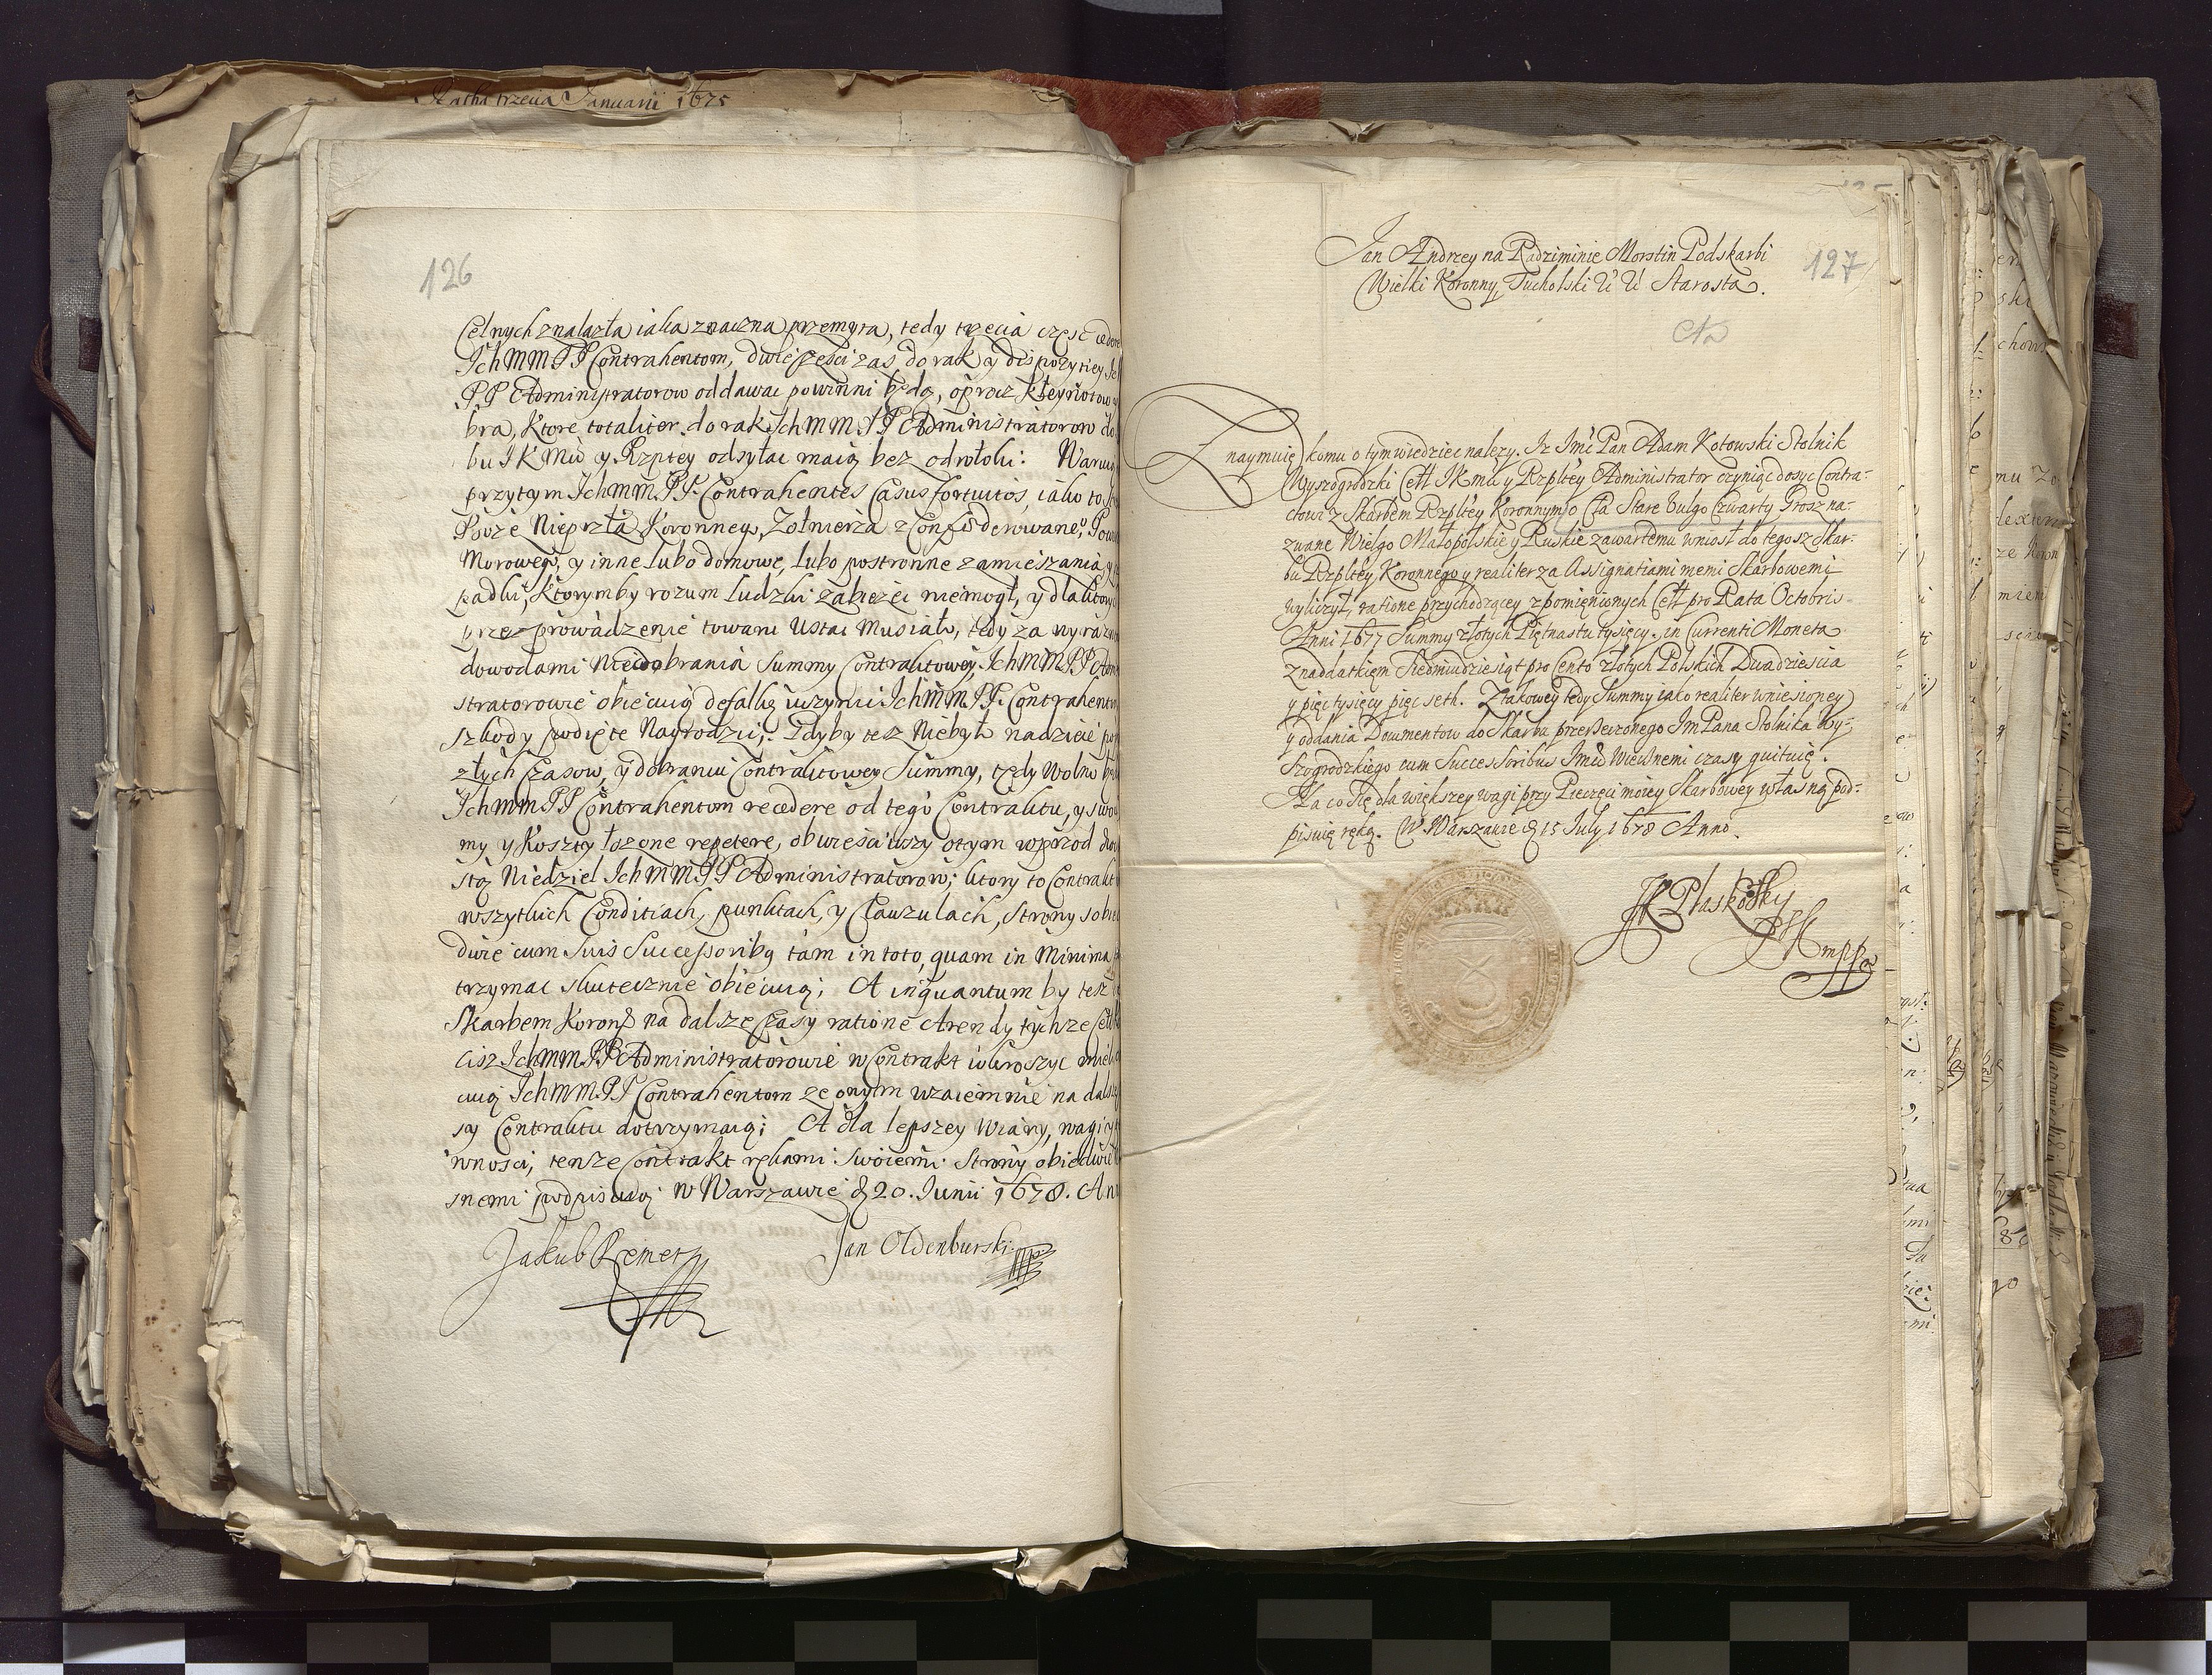 Ratha trzecia Januarii 1675
126
Celnych znalazła iaka znaczna przemyta, tedy trzecia częsć
IchMM PP Contrahentom, dwie częsci zas do rak y dispozytiey
PP Administratorow oddawac powinni będą, oprocz Kleynotow
bra, Ktore totaliter do rak IchMM PP Administratorow do
bu IKMci y Rzptey odsyłac maią bez odwłoki: Waruią
przytym IchMM PP Contrahentes Casus fortuitos, iako to
Boże Nieprzła Koronnego, Zołnierza zConfoederowanego, Pow
Morowego, y inne lubo domowe, lubo postronne zamieszania, y
padki, Ktorymby rozum ludzki zabieżec niemogł, y dla ktory
przeprowadzenie towaru Ustac Musiało, tedy za wyraźn
dowodami Nieodobrania Summy Contraktowey, IchMM PP Admi
stratorowie obiecuią defalkę uczynic IchMM PP Contrahentom
szkody podięte Nagrodzic; Gdyby tesz Niebyło nadzieie po
złych Czasow, y dobraniu Contraktowey Summy, tedy Wolno będ
IchMM PP Contrahentom recedere od tego Contraktu, y swo
my y Koszty łożone repetere, obwiesciwszy otym wprzod
stą Niedziel IchMM PP Administratorow; ktory to Contrakt
wszytkich Conditiach, punktach, y Clauzulach, Strony sobie
dwie cum Suis Successoribus tam in toto, quam in Minima
trzymac skutecznie obiecuią; A inquantum by tesz
Skarbem Koron na dalsze Czasy ratione Arendy tychze Ceł
cisz IchMM PP Administratorowie w Contrakt wkroczyc mieli
cuią IchMM PP Contrahentom ze onym wzaiemnie na dalsz
sy Contraktu dotrzymaią; A dla lepszey Wiary, wagi y
wnosci, tenze Contrakt rękami Swoiemi Strony obiedwie
snemi podpisuią w Warszawie d 20. Iunii 1678. An
Jakub Remer
Jan Oldenburski
Jan Andrzey na Radziminie Morstin Podskarbi
Wielki Koronny, Tucholski & & Starosta.
127
Znaymuię komu o tym wiedziec nalezy. Iz Imc Pan Adam Kotowski Stolnik
Wyszogrodzki Cełł IKmci y Rzpltey Administrator czyniąc dosyc Contra-
ctowi z Skarbem Rzpltey Koronnym o Cła Stare Vulgo Czwarty Grosz na-
zwane Wielgo Małopolskie y Ruskie zawartemu wniosł do tegosz Skar-
bu Rzpltey Koronnego y realiter za Assignatiami memi Skarbowemi
wyliczył, ratione przychodzącey z pomięnionych Cełł pro Rata Octobris
Anni 1677 Summy złotych Piętnastu tysięcy. in Currenti Moneta
z naddatkięm Siedmiudziesiąt pro Cento złotych Polskich Dwadziescia
y pięc tysięcy pięc seth. Z takowey tedy Summy iako realiter wniesioney
y oddania Documentow do Skarbu przerzeczonego Im Pana Stolnika Wy-
szogrodzkiego cum Successoribus Imci wiecznemi czasy quituię.
Na co się dla większey wagi przy Pieczęci moiey Skarbowey własną pod-
pisuię ręką. W Warszawie d 15 July 1678 Anno.
JK Płaskowsky
mpp